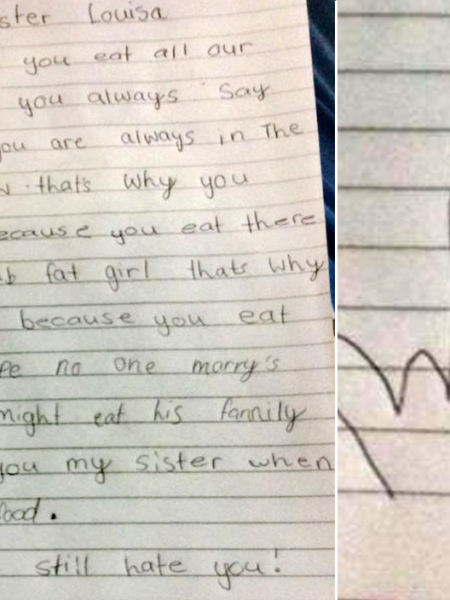 ster Louisa
you eat all our
you always say
you are always in The
thats why you
ecause you eat there
b fat girl thats why
because you eat
no one marry's
might eat his family
you my sister when
food.
still hate you!